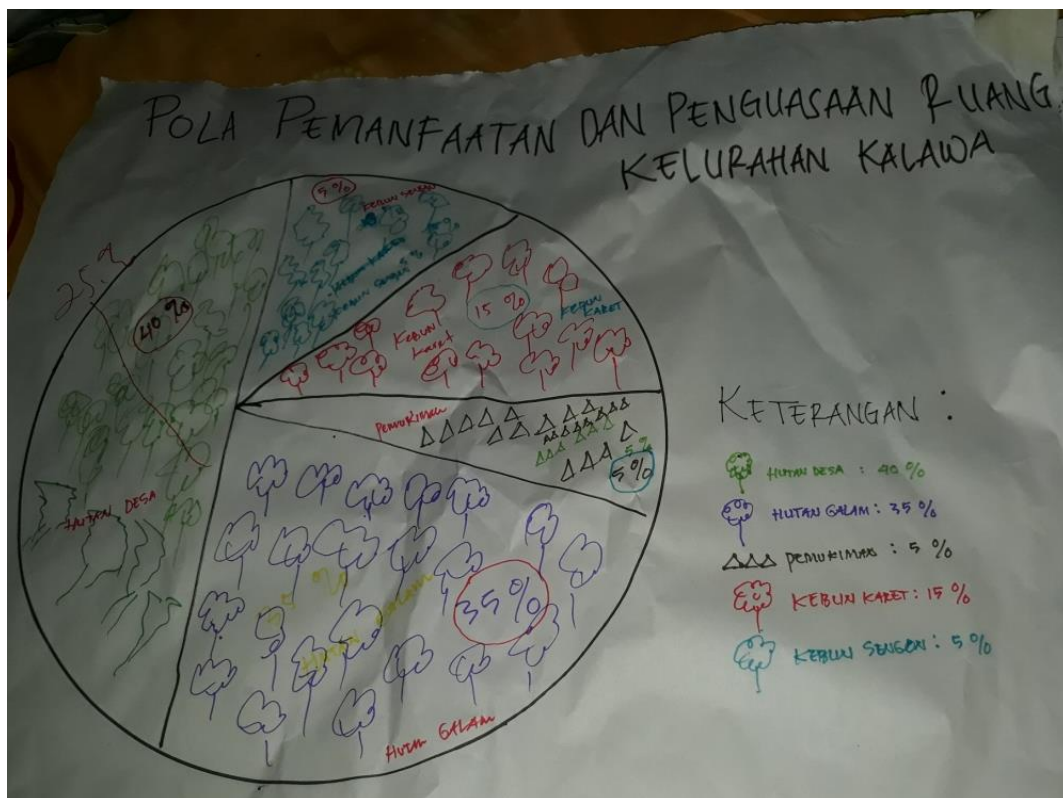 POLA PEMANFAATAN DAN PENGUASAAN RUANG
KELURAHAN KALAWA
25%
40%
HUTAN DESA
5%
KEBUN SENGON
KEBUN SENGON 5%
15%
KEBUN
KARET
KEBUN
KARET
PEMUKIMAN
5%
5%
35%
HUTAN GALAM
HUTAN GALAM
KETERANGAN :
HUTAN DESA : 40%
HUTAN GALAM : 35%
PEMUKIMAN : 5%
KEBUN KARET : 15%
KEBUN SENGON : 5%